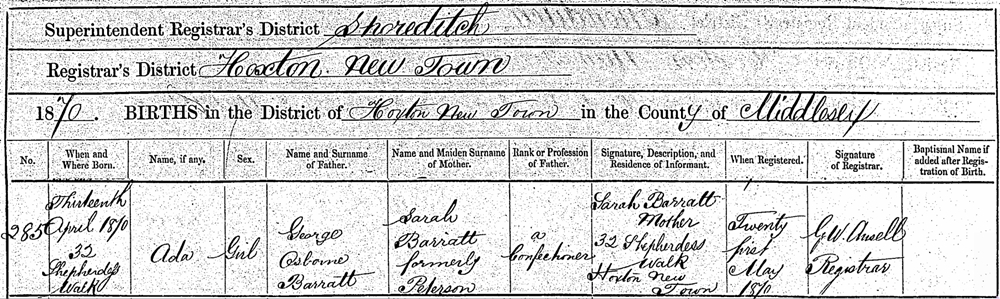 Superintendent Registrar's District Shoreditch
Registrar's District Hoxton New Town
1870. BIRTHS in the District of Hoxton New Town in the County of Middlesex
No.
When and
Where Born.
Name, if any.
Sex.
Name and Surname
of Father.
Name and Maiden Surname
of Mother.
Rank or Profession
of Father.
Signature, Description, and
Residence of Informant.
When Registered.
Signature
of Registrar.
Baptismal Name if
added after Regis-
tration of Birth.
285
Thirteenth
April 1870
32
Shepherdess
Walk
Ada
Girl
George
Osborne
Barratt
Sarah
Barratt
formerly
Peterson
a
Confectioner
Sarah Barratt
Mother
32 Shepherdess
Walk
Hoxton New
Town
Twenty
first
May
1870
G W Ansell
Registrar